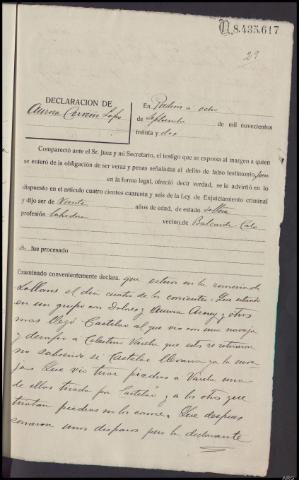 N. 8.435.617
29
DECLARACION DE
Aurora Carreira Lopez
En Padrón a ocho
de septiembre de mil novecientos
treinta y dos
Compareció ante el Sr. Juez y mi Secretario, el testigo que se expresa al margen a quien
se enteró de la obligación de ser veraz y penas señaladas al delito de falso testimonio,
en la forma legal, ofreció decir verdad, se le advirtió en lo
dispuesto en el artículo cuatro cientos cuarenta y seis de la Ley de Enjuiciamiento criminal
y dijo ser de Veinte años de edad, de estado soltera
profesión labradora vecino de
fue procesado
Examinado convenientemente declara: que estuvo en la romería de
el día cuatro de los corrientes. Que estando
en un grupo con Dolores y Aurora y otros
mas llegó Castelao al que vio con una navaja
y a Celestino Varela que este se retiraron
no sabiendo si Castelao llevaria ya la nava
ja. Que vio tirar piedras a Varela una
de ellas tirada por Castelao y a los otros que
tiraban piedras no los conoce. Que despues
sonaron unos disparos pero la declarante